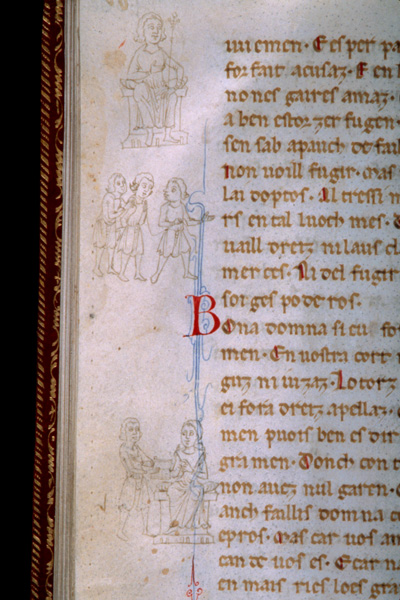 men · E esper pa
forfait acusaz · E en l
nones gaires amaz ·
a ben estorzer fugen ·
sen sab apauch de fail
non uoill fugir · mas
Lai doptos · Al tressi m
rs en tal luoch mes ·
uaill dreiz ni laus cl
merces · Ni del fugir
soi ges poderos ·
Bona domna si cu fo
men · En uostra cort
guiz ni uizaz · Lo torz
ei fora dreiz apellar ·
men puois ben es dir
gramen · Donch con t
non auez nul garen ·
anch faillis domna c
epros · Mas car uos am
can te uos es · E car n
en mais ries loes gra